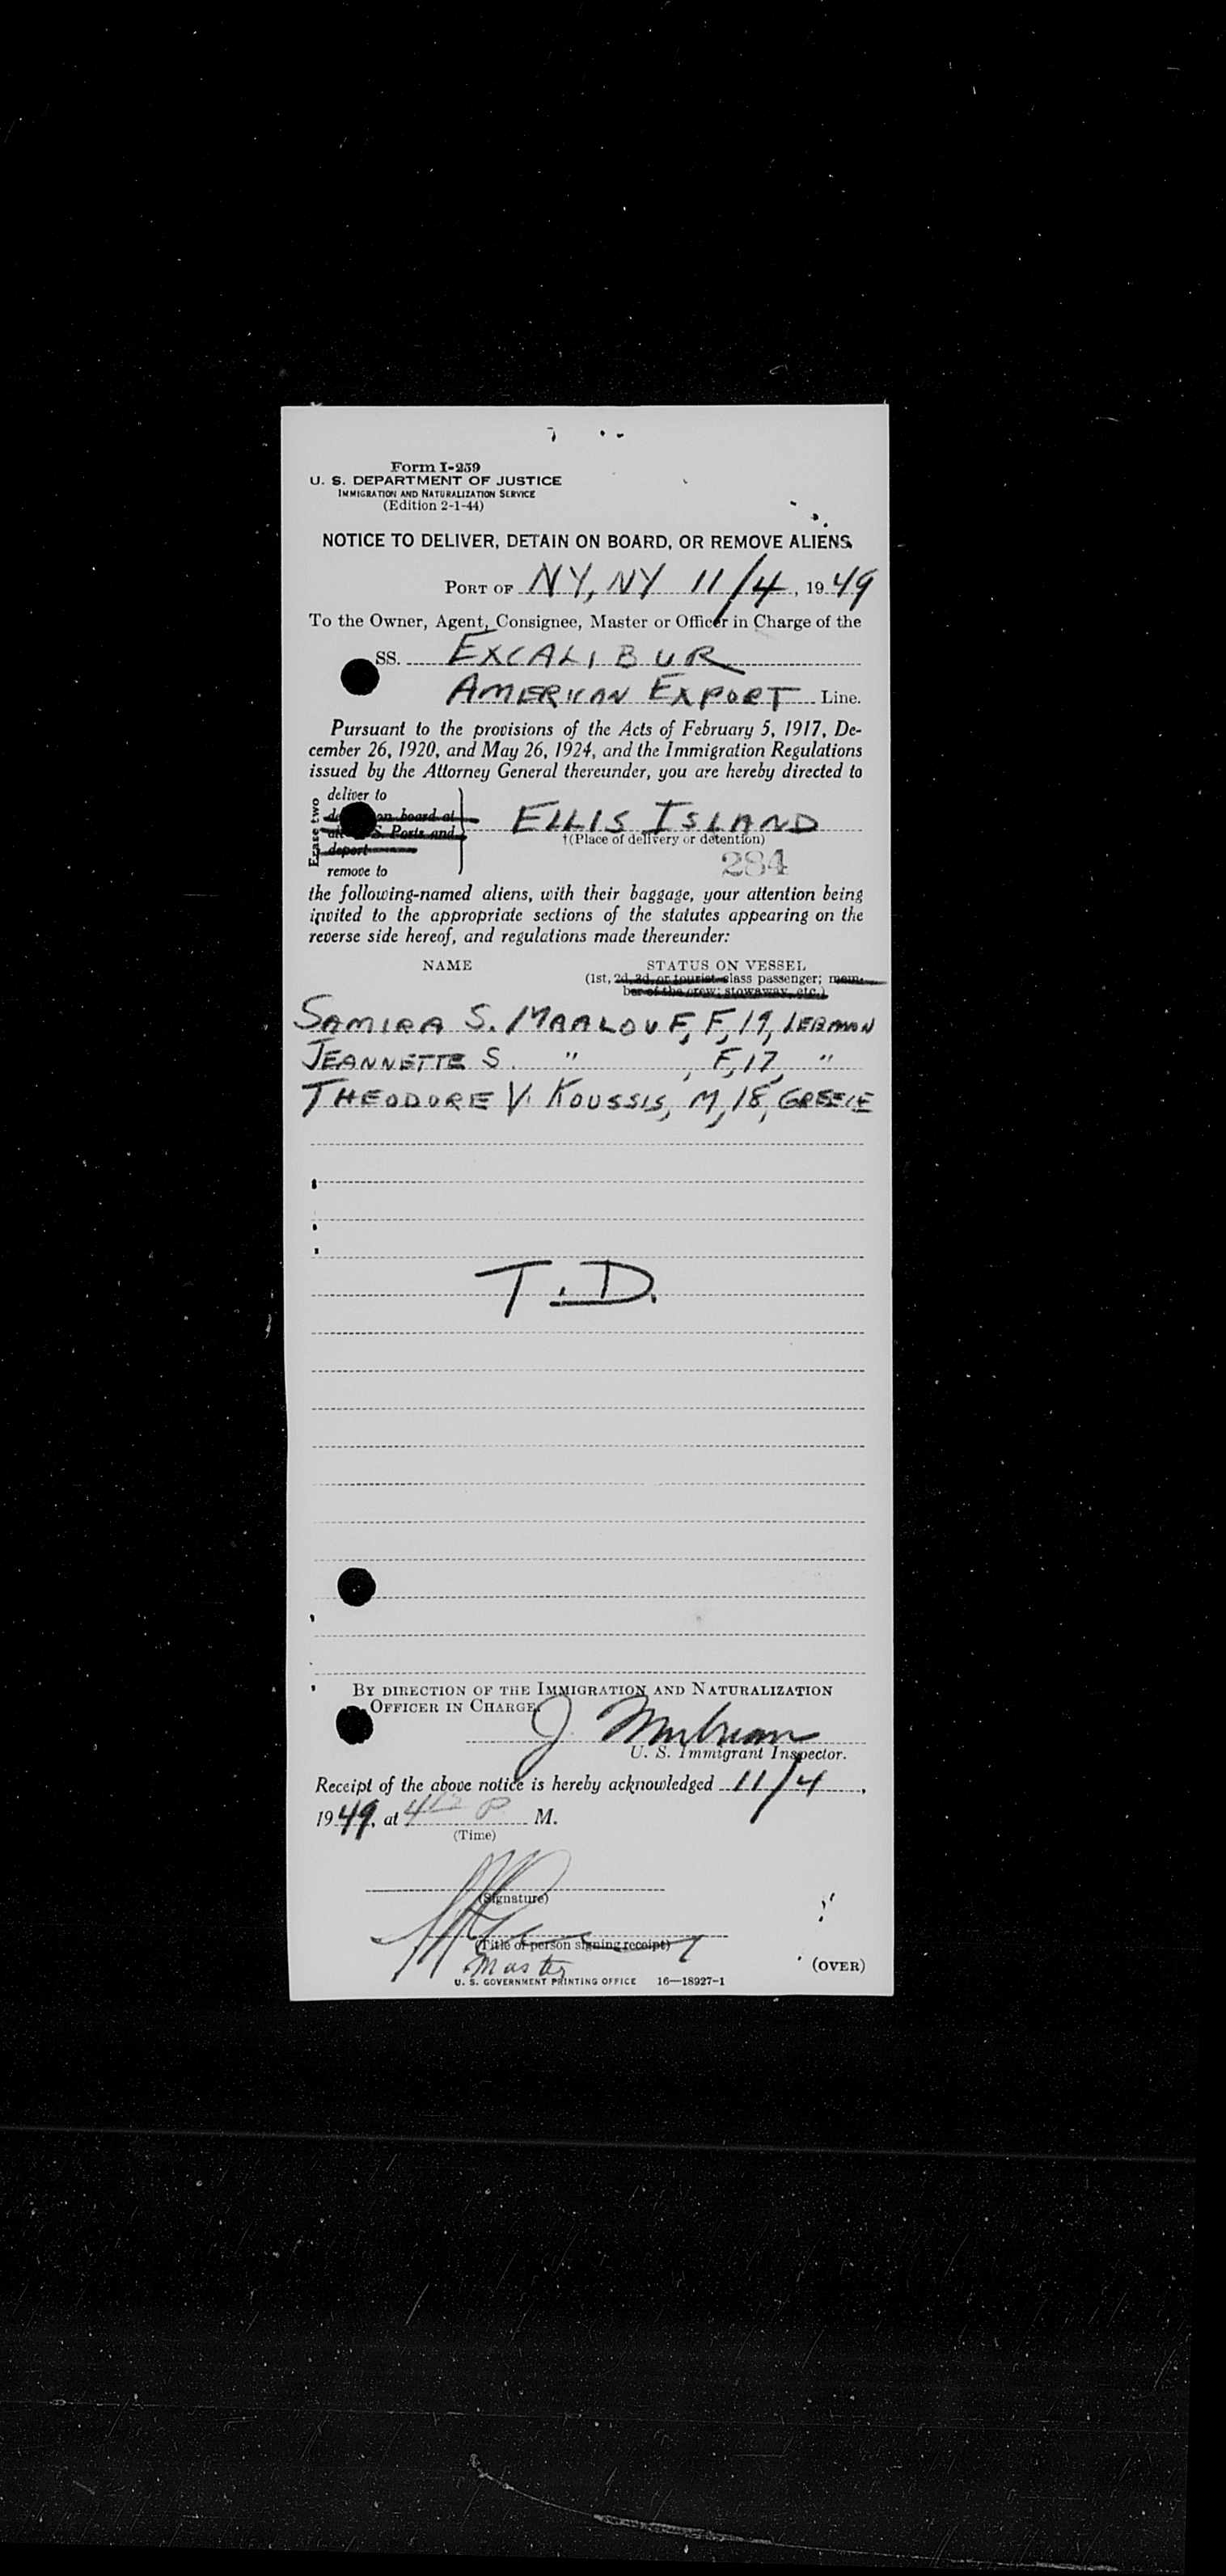 Form I-259
U. S. DEPARTMENT OF JUSTICE
IMMIGRATION AND NATURALIZATION SERVICE
(Edition 2-1-44)
NOTICE TO DELIVER, DETAIN ON BOARD, OR REMOVE ALIENS
PORT OF NY, NY 11/4, 1949
To the Owner, Agent, Consignee, Master or Officer in Charge of the
SS. EXCALIBUR
AMERICAN EXPORT Line.
Pursuant to the provisions of the Acts of February 5, 1917, De-
cember 26, 1920, and May 26, 1924, and the Immigration Regulations
issued by the Attorney General thereunder, you are hereby directed to
Erase two
deliver to
on board at
S. Ports and
deport
remove to
ELLIS ISLAND
†(Place of delivery or detention)
284
the following-named aliens, with their baggage, your attention being
invited to the appropriate sections of the statutes appearing on the
reverse side hereof, and regulations made thereunder:
NAME STATUS ON VESSEL
(1st, 2d, 3d, or tourist class passenger; mem-
ber of the crew; stowaway, etc.)
SAMIRA S. MAALOUF, F, 19, LEBMAN
JEANNETTE S. " , F, 17, "
THEODORE V. KOUSSIS, M, 18, GREECE
T.D.
BY DIRECTION OF THE IMMIGRATION AND NATURALIZATION
OFFICER IN CHARGE.
J.
U. S. Immigrant Inspector.
Receipt of the above notice is hereby acknowledged 11/4,
1949, at P M.
(Time)
(Signature)
(Title of person signing receipt)
Master
(OVER)
U. S. GOVERNMENT PRINTING OFFICE 16—18927-1